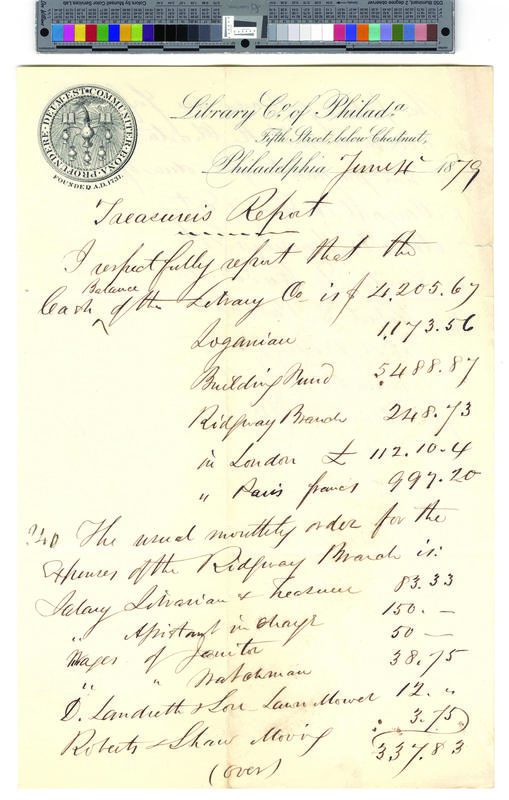 PROFUNDERE · DEUM · EST · COMMUNITER · BONA
FOUNDED A.D. 1731.
Library Co. of Philada.
Fifth Street, below Chestnut,
Philadelphia June 4 1879
Treasurer's Report
I respectfully report that the
Balance
Cash of the Library Co is $ 4,205.67
Loganian 1,173.56
Building Fund 5488.87
Ridgway Branch 248.73
in London £ 112.10.4
" Paris francs 997.20
The usual monthly order for the
Expenses of the Ridgway Branch is:
Salary Librarian & Treasurer 83.33
" Assistant in charge 150. —
Wages of Janitor 50 —
" " Watchman 38.75
D. Landreth & Son Lawn Mower 12. "
Roberts & Shaw Moving 3.75
337.83
(over)